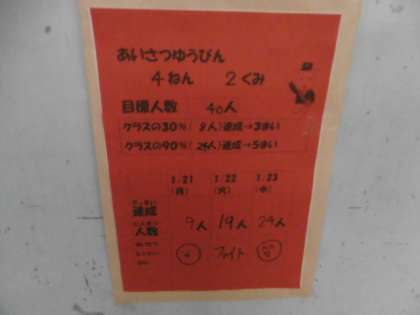 あいさつゆうびん
4ねん 2くみ
目標人数 40人
クラスの30%(8人)達成→3まい
クラスの90%(26人)達成→5まい
1.21 1.22 1.23
(月) (火) (水)
達成 人数 9人 19人 24人
ファイト